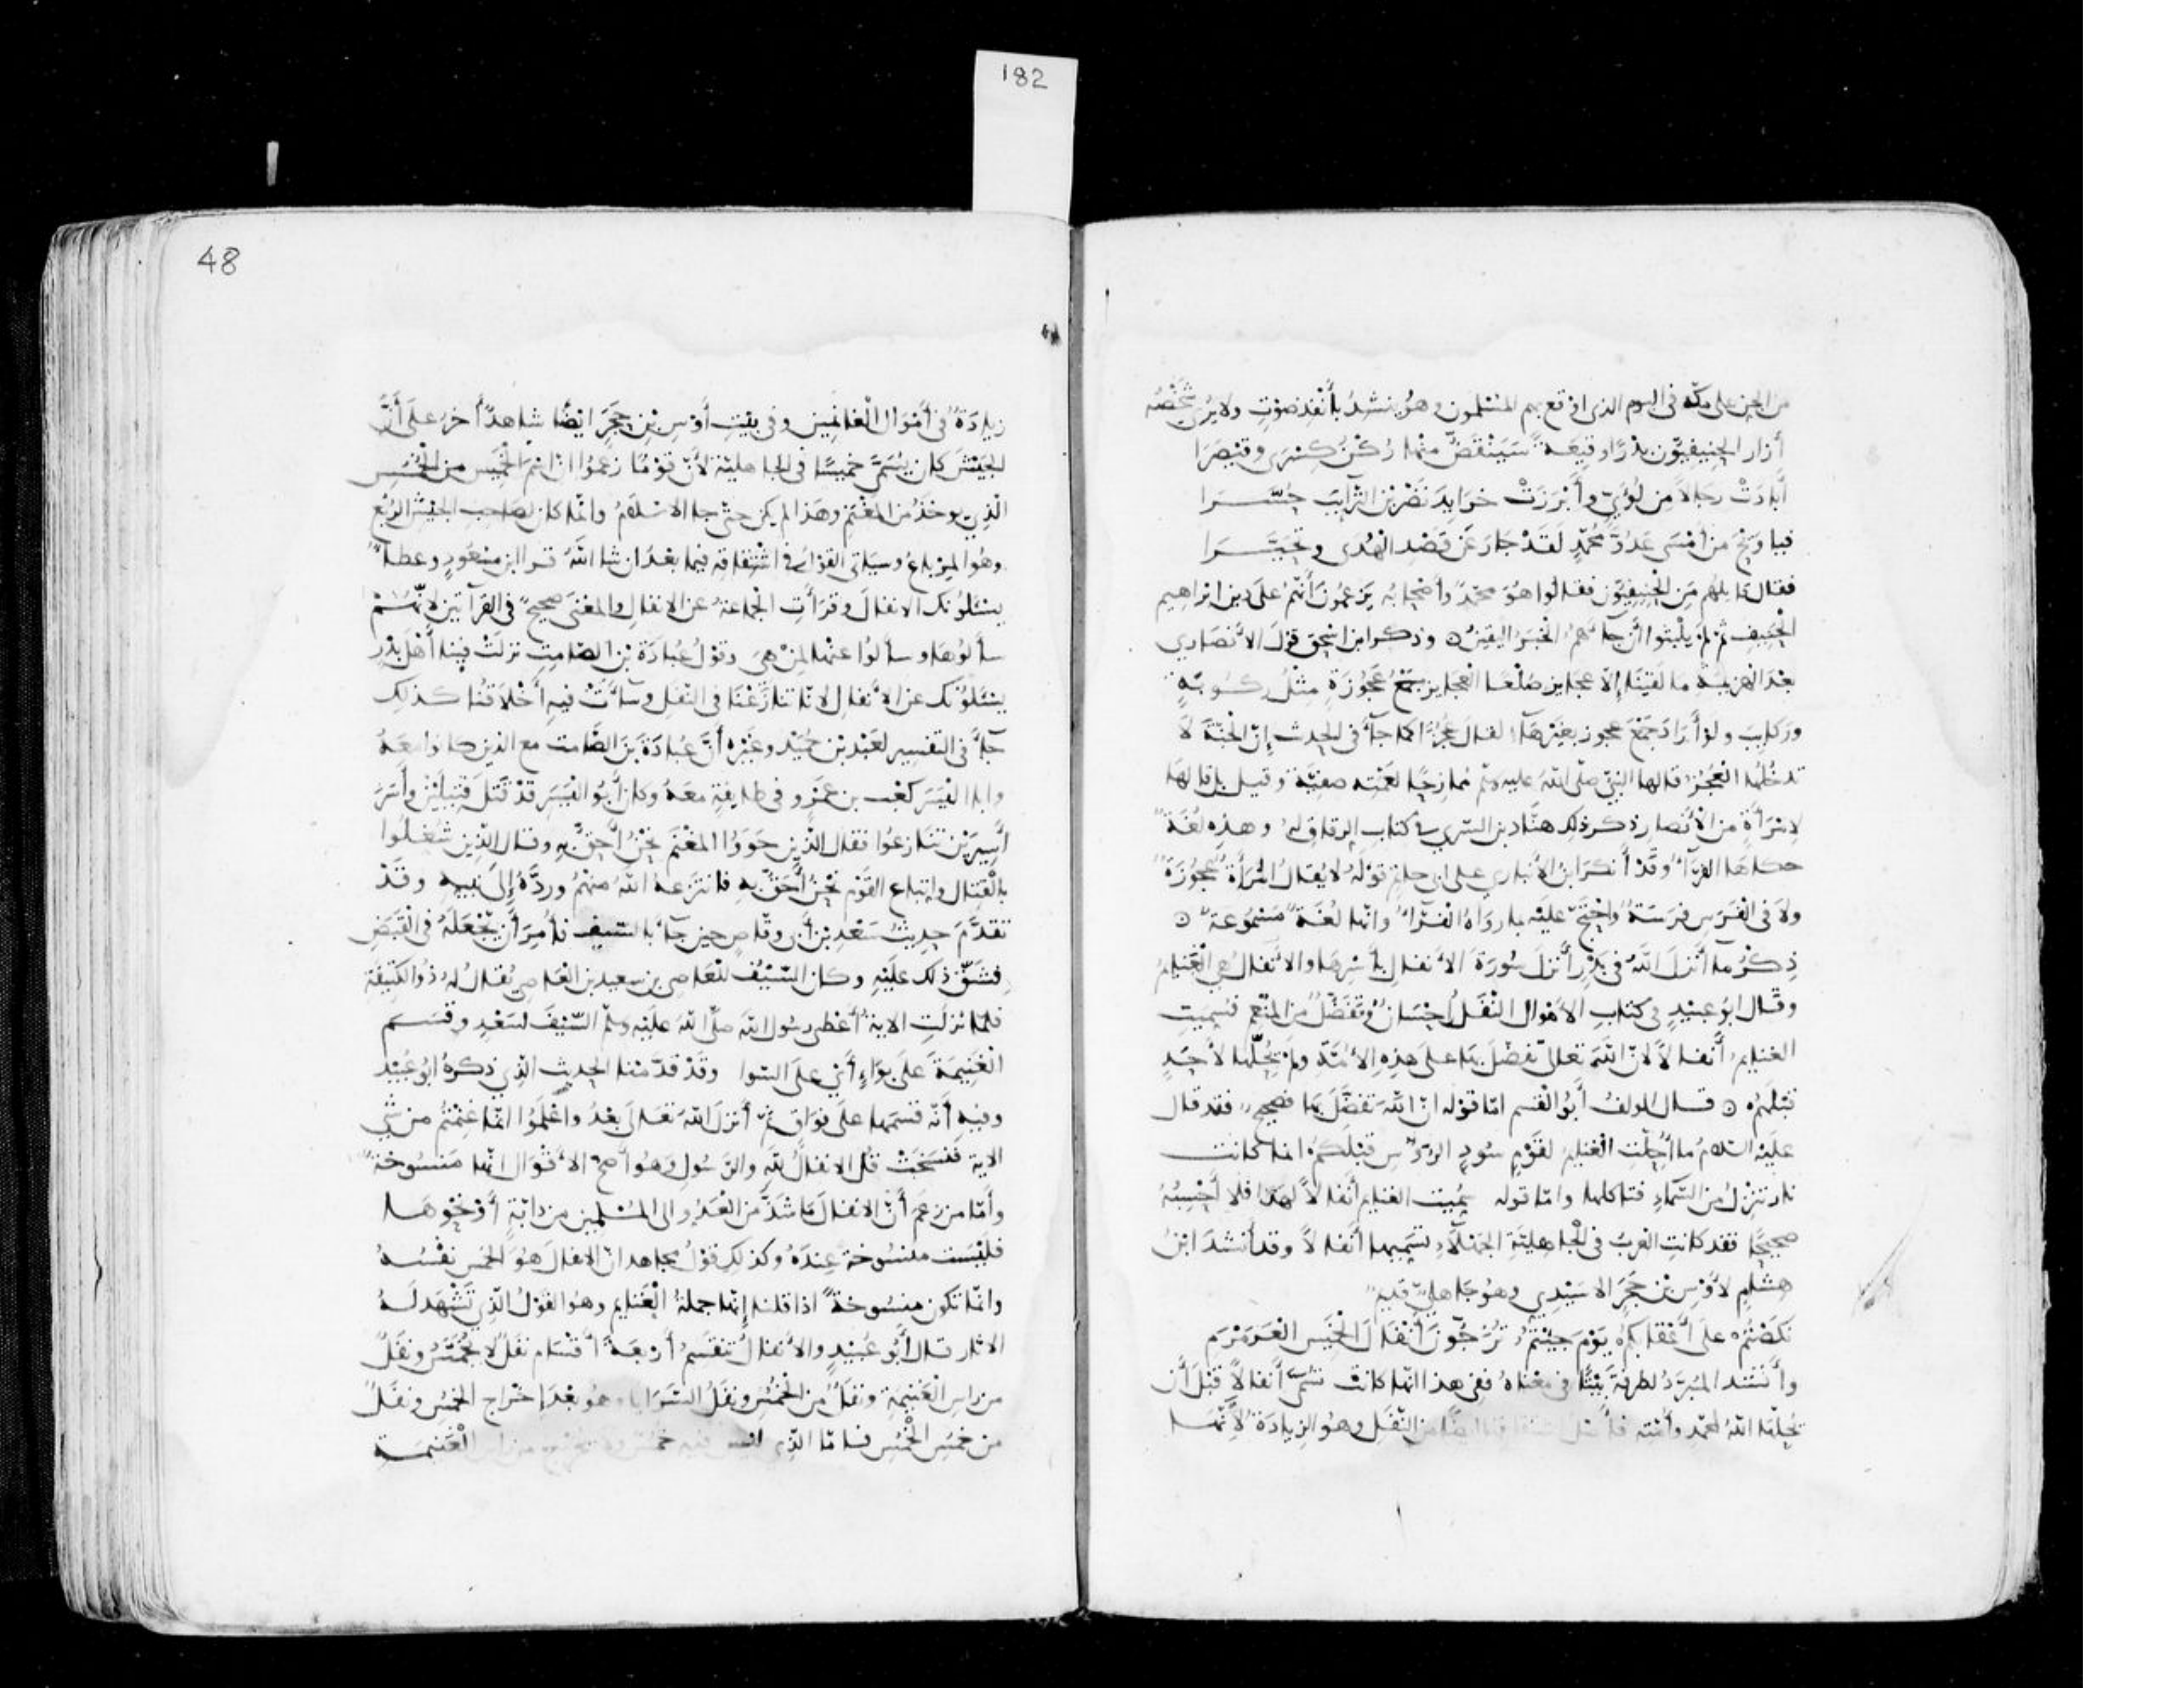 182
من الجن على مكة في اليوم الذي اوقع بهم المسلمون وهو ينشد بأنفذ صوت ولا يرى شخصه
أزار الحنيفيون بدرا وقيعة سينقض منها ركن كسرى وقيصرا
أبادت رجالا من لؤي وأبرزت خرايد يضربن الترايب حسرا
فيا ويح من أمسى عدو محمد لقد جار عن قصد الهدى وتحيرا
فقال قايلهم من الحنيفيون فقالوا هو محمد وأصحابه يزعمون أنهم على دين ابراهيم
الحنيف ثم لم يلبثوا أن جاءهم الخبر اليقين وذكر ابن اسحق قول الأنصاري
بعد الهزيمة ما لقينا إلا عجايز صلعا العجايز جمع عجوزة مثل ركوبة
وركايب ولو أراد جمع عجوز بغير هاء لقال عجز كما جاء في الحديث إن الجنة لا
تدخلها العجز قالها النبي صلى الله عليه وسلم ممازحا لعمته صفية وقيل بل قالها
لامرأة من الأنصار ذكر ذلك هناد بن السري في كتاب الرقاق له وهذه لغة
حكاها الفراء وقد أنكر ابن الأنباري على ابي حاتم قوله لا يقال للمرأة عجوزة
ولا في الفرس فرسة واحتج عليه بما رواه الفراء وانها لغة مسموعة
ذكر ما أنزل الله في بدر أنزل سورة الأنفال بأسرها والأنفال هي الغنايم
وقال ابو عبيد في كتاب الاموال النفل إحسان وتفضل من المنعم فسميت
الغنايم أنفالا لان الله تعالى تفضل بها على هذه الأمة ولم يحلها لأحد
قبلهم قال المولف أبو القسم اما قوله ان الله تفضل بها فصحيح فقد قال
عليه السلم ما أحلت الغنايم لقوم سود الرؤس قبلكم انما كانت
نار تنزل من السماء فتاكلها واما قوله سميت الغنايم أنفالا لهذا فلا أحسبه
صحيحا فقد كانت العرب في الجاهلية الجهلاء تسميها أنفالا وقد أنشد ابن
هشام لأوس بن حجر الاسيدي وهو جاهلي قديم
نكصتم على أعقابكم يوم جيتم تزجون أنفال الخميس العرمرم
وأنشد المبرد لطرفة بيتا في معناه ففي هذا انها كانت تسمى أنفالا قبل أن
يحلها الله لمحمد وأمته فأصل اشتقاقها ايضا من النفل وهو الزيادة لأنها
48
زيادة في أموال الغانمين وفي بيت أوس بن حجر ايضا شاهد آخر على أن
الجيش كان يسمى خميسا في الجاهلية لأن قوما زعموا ان اسم الخميس من الخمس
الذي يوخذ من المغنم وهذا لم يكن حتى جا الاسلام وانما كان لصاحب الجيش الربع
وهو المرباع وسياتي القول في اشتقاقه فيما بعد ان شا الله قرا ابن مسعود وعطاء
يسئلونك الانفال وقرأت الجماعة عن الانفال والمعنى صحيح في القرآتين لأنهم
سألوها وسألوا عنها لمن هي وقول عبادة بن الصامت نزلت فينا أهل بدر
يسئلونك عن الأنفال لانا تنازعنا في النفل وساءت فيه أخلاقنا كذلك
جاء في التفسير لعبد بن حميد وغيره أن عبادة بن الصامت مع الذين كانوا معه
وابا اليسر كعب بن عمرو في طايفة معه وكان أبو اليسر قد قتل قتيلين وأسر
أسيرين تنازعوا فقال الذين حووا المغنم نحن أحق به وقال الذين شغلوا
بالقتال واتباع القوم نحن أحق به فانتزعه الله منهم ورده إلى نبيه وقد
تقدم حديث سعد بن أبي وقاص حين جاء بالسيف فأمر أن يجعله في القبض
فشق ذلك عليه وكان السيف للعاصي بن سعيد بن العاصي يقال له ذو الكتيفة
فلما نزلت الاية أعطى رسول الله صلى الله عليه وسلم السيف لسعد وقسم
الغنيمة على بواء أي على السوا وقد قدمنا الحديث الذي ذكره ابو عبيد
وفيه أنه قسمها على فواق ثم أنزل الله تعالى بعد واعلموا انما غنمتم من شي
الاية فنسخت قل الانفال لله والرسول وهو أصح الأقوال انها منسوخة
وأما من زعم أن الانفال ما شذ من العدو الى المسلمين من دابة أو نحوها
فليست منسوخة عنده وكذلك قول مجاهد ان الانفال هو الخمس نفسه
وانما تكون منسوخة اذا قلنا إنها جملة الغنايم وهو القول الذي تشهد له
الاثار قال أبو عبيد والأنفال تنقسم أربعة أقسام نفل لا يخمس ونفل
من راس الغنيمة ونفل من الخمس ونفل السرايا وهو بعد إخراج الخمس ونفل
من خمس الخمس فاما الذي ليس فيه خمس ولا الغنيمة